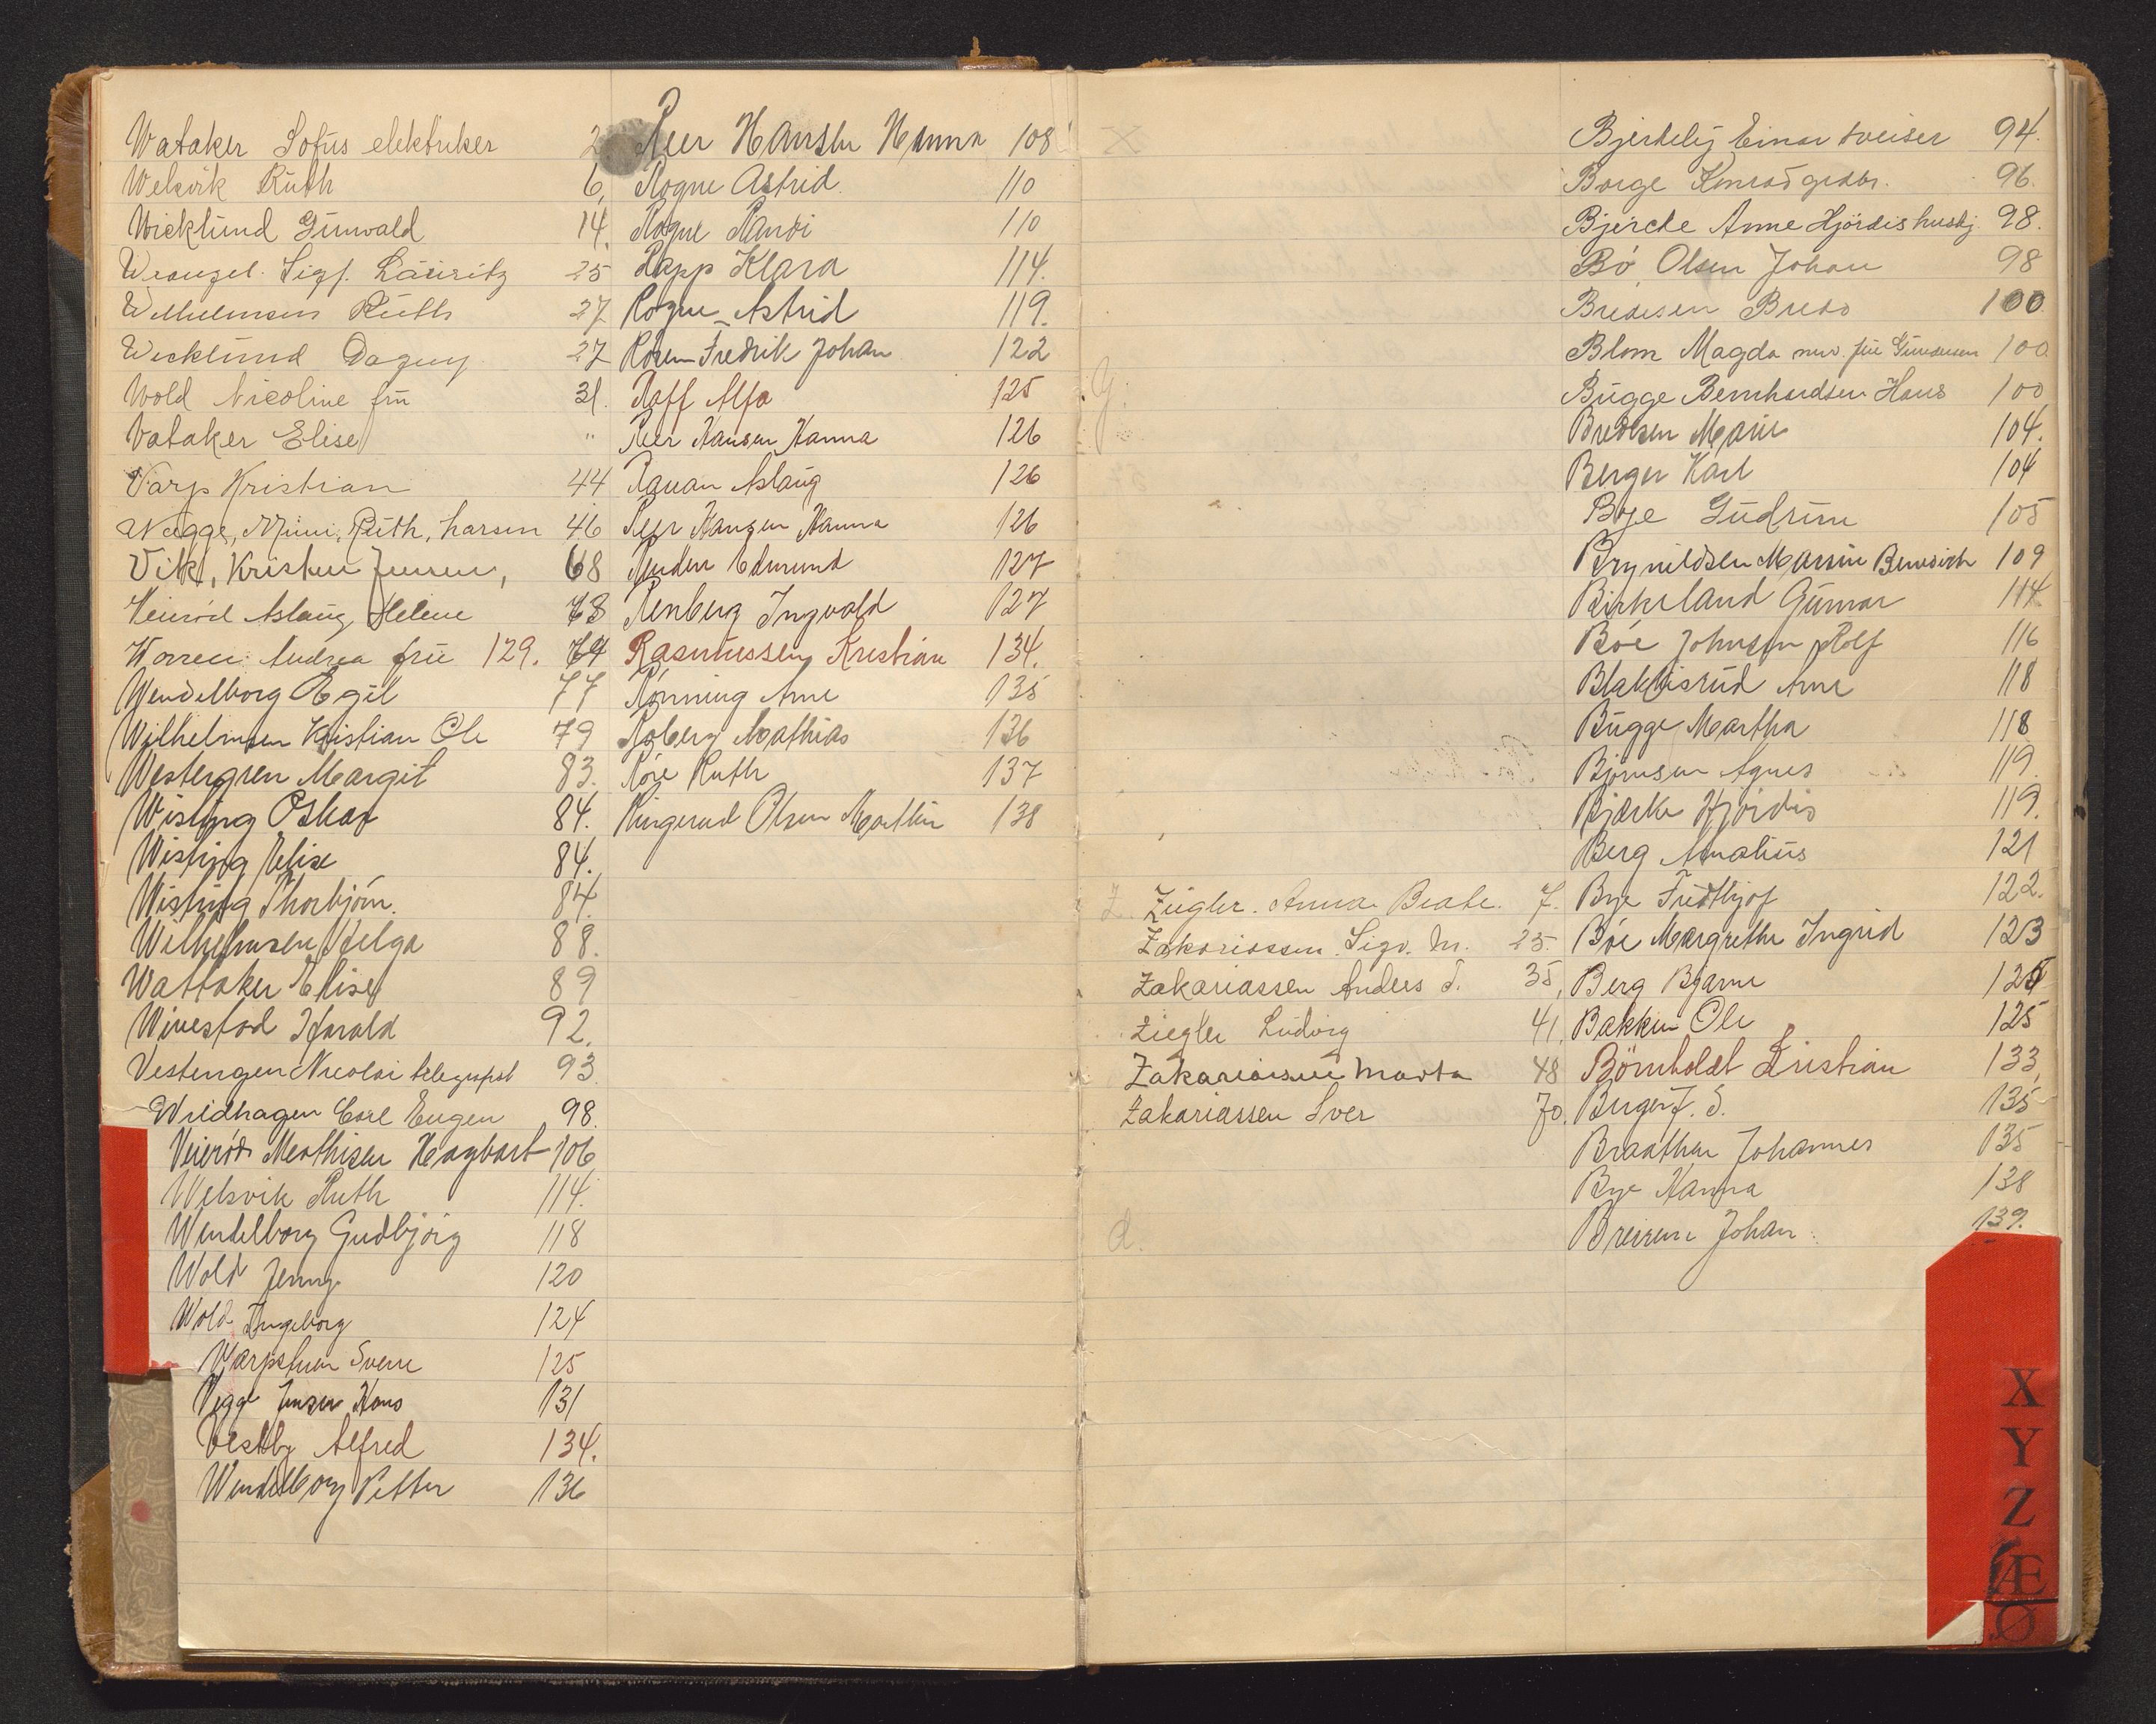 Wataker Sofus elektriker 2
Welsvik Ruth 6
Wicklund Gunvald 14
Wrangel. Sigf. Lauritz 25
Wilhelmsen Ruth 27
Wicklund Dagny 27
Wold Nicoline frü 31.
Vataker Elise "
Varp Kristian 44
Wegge, Mimi, Ruth, Larsen 46
Vik, Kristine Jensen, 68
Veierød Aslaug Helene 73
Worren Andrea frü 129. 74
Wendelborg Egil 77
Wilhelmsen Kristian Ole 79
Westergren Margit 83.
Wisting Oskar 84.
Wisting Elise 84.
Wisting Thorbjörn. 84.
Wilhelmsen Helga 88.
Wattaker Elise 89
Wivestad Harald 92.
Vestengen Nicolai telegrafist 93
Wildhagen Carl Eugen 98.
Veierød Mathisen Hagbart 106
Welsvik Ruth 114.
Wendelborg Gudbjörg 118
Wold Jenny 120
Wold Ingeborg 124
Varpstuen Sverre 125
Vegge Jensen Hans 131
Vestby Alfred 134.
Wendelborg Petter 136
Reer Hansen Hanna 108
Rogne Astrid. 110
Rogne Randi 110
Rapp Klara 114.
Rogne Astrid 119.
Rosen Fredrik Johan 122
Raff Alfa 125
Reer Hansen Hanna 126
Rauan Aslaug 126
Reer Hansen Hanna 126
Ruden Edmund 127
Renberg Ingvald 127
Rasmussen Kristian 134.
Rönning Arne 135
Roberg Mathias 136
Röre Ruth 137
Ringerud Olsen Marthin 138
X
Y.
Z. Ziegler. Anna Beate. 7.
Zakariassen. Sigv. M. 25.
Zakariassen Anders S. 35,
Ziegler Ludvig 41,
Zakariassen Marta 48
Zakariassen Iver 70.
Bjerkelij Einar sveiser 94.
Borge Konrad grdbr. 96.
Bjercke Anne Hjördis husbj. 98.
Bö Olsen Johan 98
Bredesen Bredo 100
Blom Magda nuv. frü Gundersen 100
Bugge Bernhardsen Hans 100
Bredesen Marie 104.
Berger Karl 104
Boje Gudrun 105
Brynildsen Martin Benedikt 109
Birkeland Gunnar 114
Böe Johnsen Rolf 116
Blakkisrud Arne 118
Bugge Martha 118
Björnsen Agnes 119.
Bjærke Hjördis 119.
Berg Amalius 121
Bye Fridthjof 122.
Böe Margrethe Ingrid 123
Berg Bjarne 125
Bakken Ole 125
Börnholdt Kristian 133,
Berger F. S. 135
Braathen Johannes 135
Bye Hanna 138
Breirem Johan. 139.
X
Y
Z
Æ
Ø